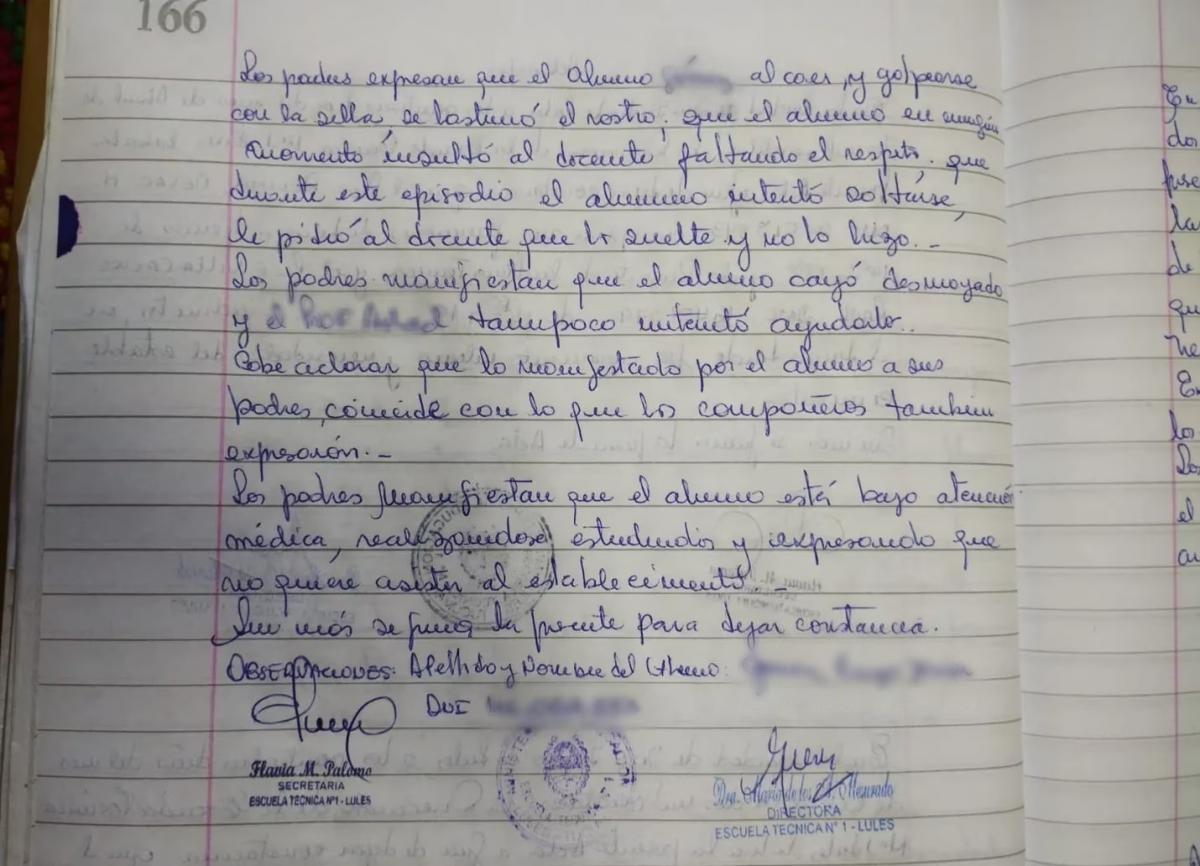 166
Los padres expresan que el alumno al caer, y golpearse
con la silla, se lastimó el rostro; que el alumno en ningún
momento insultó al docente faltando el respeto. que
durante este episodio el alumno intentó soltarse,
le pidió al docente que lo suelte y no lo hizo. -
Los padres manifiestan que el alumno cayó desmayado
y el tampoco intentó ayudarlo.
Cabe aclarar que lo manifestado por el alumno a sus
padres, coincide con lo que los compañeros también
expresarón. -
Los padres manifiestan que el alumno está bajo atención
médica, realizandose estudios y expresando que
no quiere asistir al establecimento. -
Sin más se firma la presente para dejar constancia.
OBSERVACIONES: Apellido y Nombre del Alumno:
DNI
Flavia M. Palomo
SECRETARIA
ESCUELA TECNICA Nº1 - LULES
DIRECTORA
ESCUELA TECNICA Nº 1 - LULES